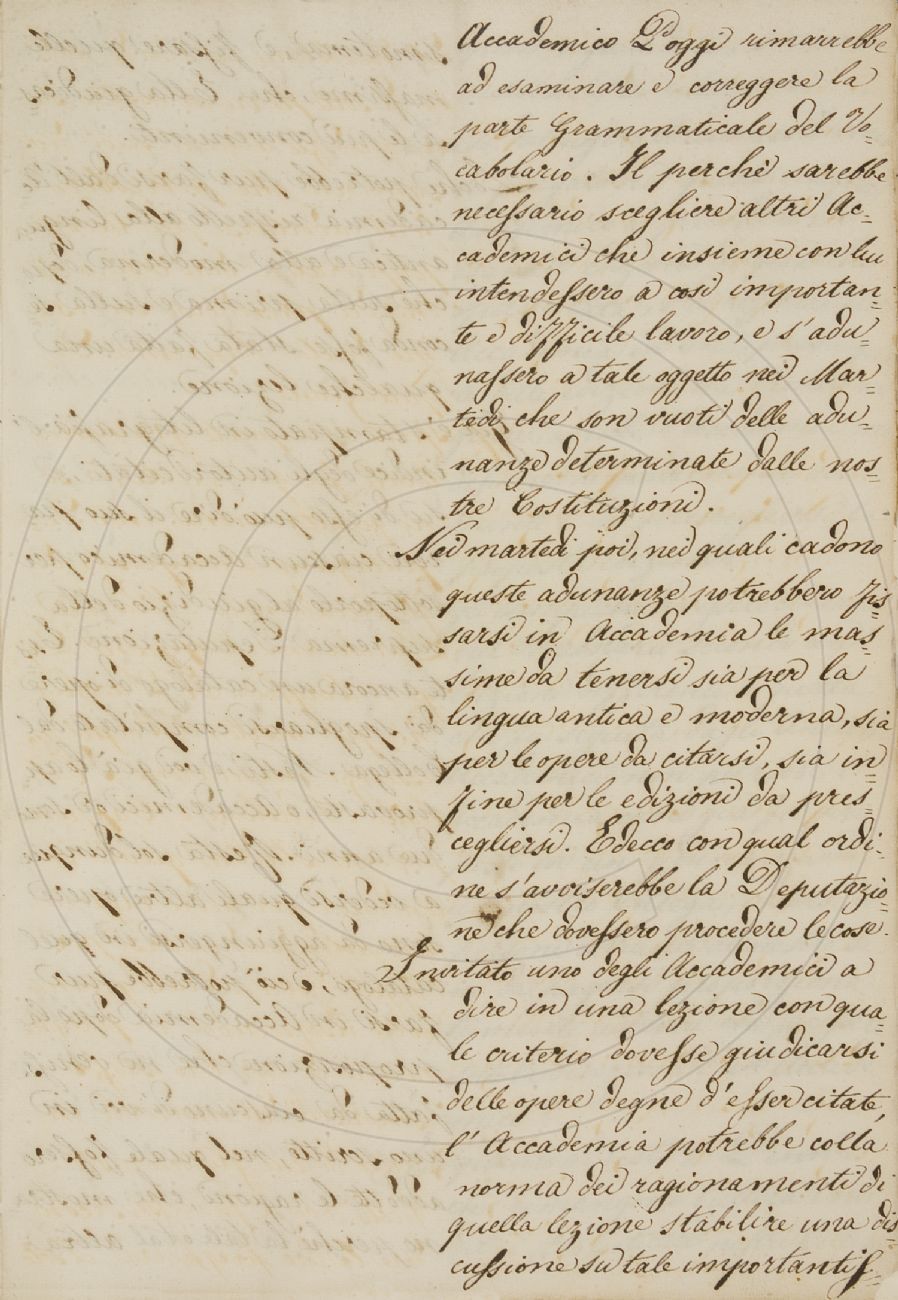 Accademico Poggi rimarrebbe
ad esaminare e correggere la
parte Grammaticale del Vo=
cabolario. Il perchè sarebbe
necessario scegliere altri Ac=
cademici che insieme con lui
intendessero a così importan=
te e difficile lavoro, e s'adu=
nassero a tale oggetto nei Mar=
tedì che son vuoti delle adu=
nanze determinate dalle nos=
tre Costituzioni.
Nei martedì poi, nei quali cadono
queste adunanze potrebbero fis=
sarsi in Accademia le mas=
sime da tenersi sia per la
lingua antica e moderna, sia
per le opere da citarsi, sia in=
fine per le edizioni da pres=
cegliersi. Ed ecco con qual ordi=
ne s'avviserebbe la Deputazio=
ne che dovessero procedere le cose.
Invitato uno degli Accademici a
dire in una lezione con qua=
le criterio dovesse giudicarsi
delle opere degne d'esser citate,
l'Accademia potrebbe colla
norma dei ragionamenti di
quella lezione stabilire una dis=
cussione su tale importantis=